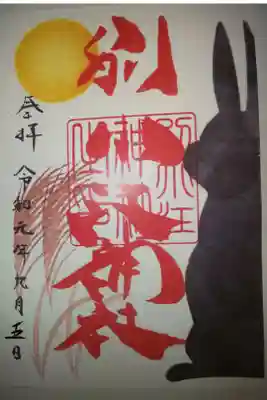 別小江神社
奉拝 令和元年九月五日